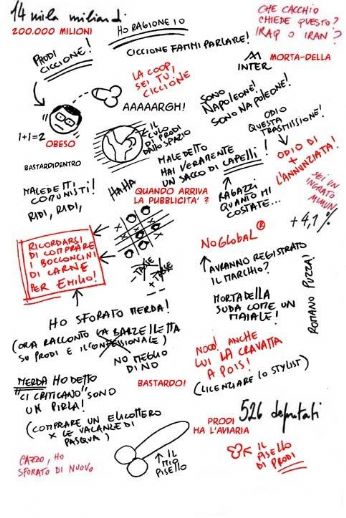 14 mila miliardi
200.000 MILIONI
HO RAGIONE IO
CHE CACCHIO
CHIEDE QUESTO?
IRAQ O IRAN?
PRODI
CICCIONE!
CICCIONE FAMMI PARLARE!
INTER
MORTA-DELLA
LA COOP,
SEI TU!
CICCIONE
SONO
NAPOLEONE!
SONO NAPOLEONE!
AAAAARGH!
1+1=2
OBESO
IL CULO
DI PRODI
DALLO SPAZIO
ODIO
QUESTA
TRASMISSIONE!
BASTARDIDENTRO
MALEDETTO
HAI VERAMENTE
UN SACCO DI CAPELLI!
ODIO DI +
L'ANNUNZIATA!
MALEDETTI
COMUNISTI!
RIDI, RIDI,
HAHA
QUANDO ARRIVA
LA PUBBLICITA'?
RAGAZZI
QUANTO MI
COSTATE...
SEI UN
INGRATO
MIMUN!
+4,1%
RICORDARSI
DI COMPRARE
I BOCCONCINI
DI CARNE
PER EMILIO!
- TASSE
- TASSE
NOGLOBAL®
AVRANNO REGISTRATO
IL MARCHIO?
MORTADELLA
SUDA COME UN
MAIALE!
ROMANO PUZZA!
HO SFORATO MERDA!
(ORA RACCONTO LA BARZELLETTA
SU PRODI E IL CONFESSIONALE)
NO MEGLIO
DI NO
NOOO! ANCHE
LUI LA CRAVATTA
A POIS!
(LICENZIARE LO STYLIST)
MERDA HO DETTO
"CI CRITICANO" SONO
UN PIRLA!
BASTARDO!
(COMPRARE UN ELICOTTERO
X LE VACANZE DI
PASQUA)
526 deputati
PRODI
HA L'AVIARIA
CAZZO, HO
SFORATO DI NUOVO
IL MIO
PISELLO
IL
PISELLO
DI PRODI